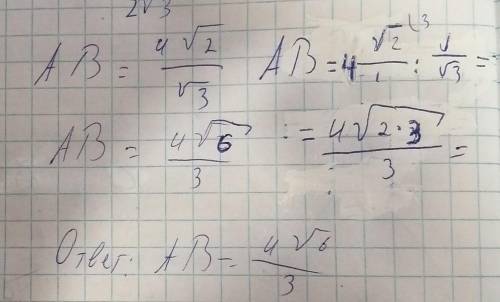 2√3
AB = 4√2/√3 AB = 4 √2/1 : √/√3 =
AB = 4√6/3 := 4√2·3/3 =
Ответ: AB = 4√6/3